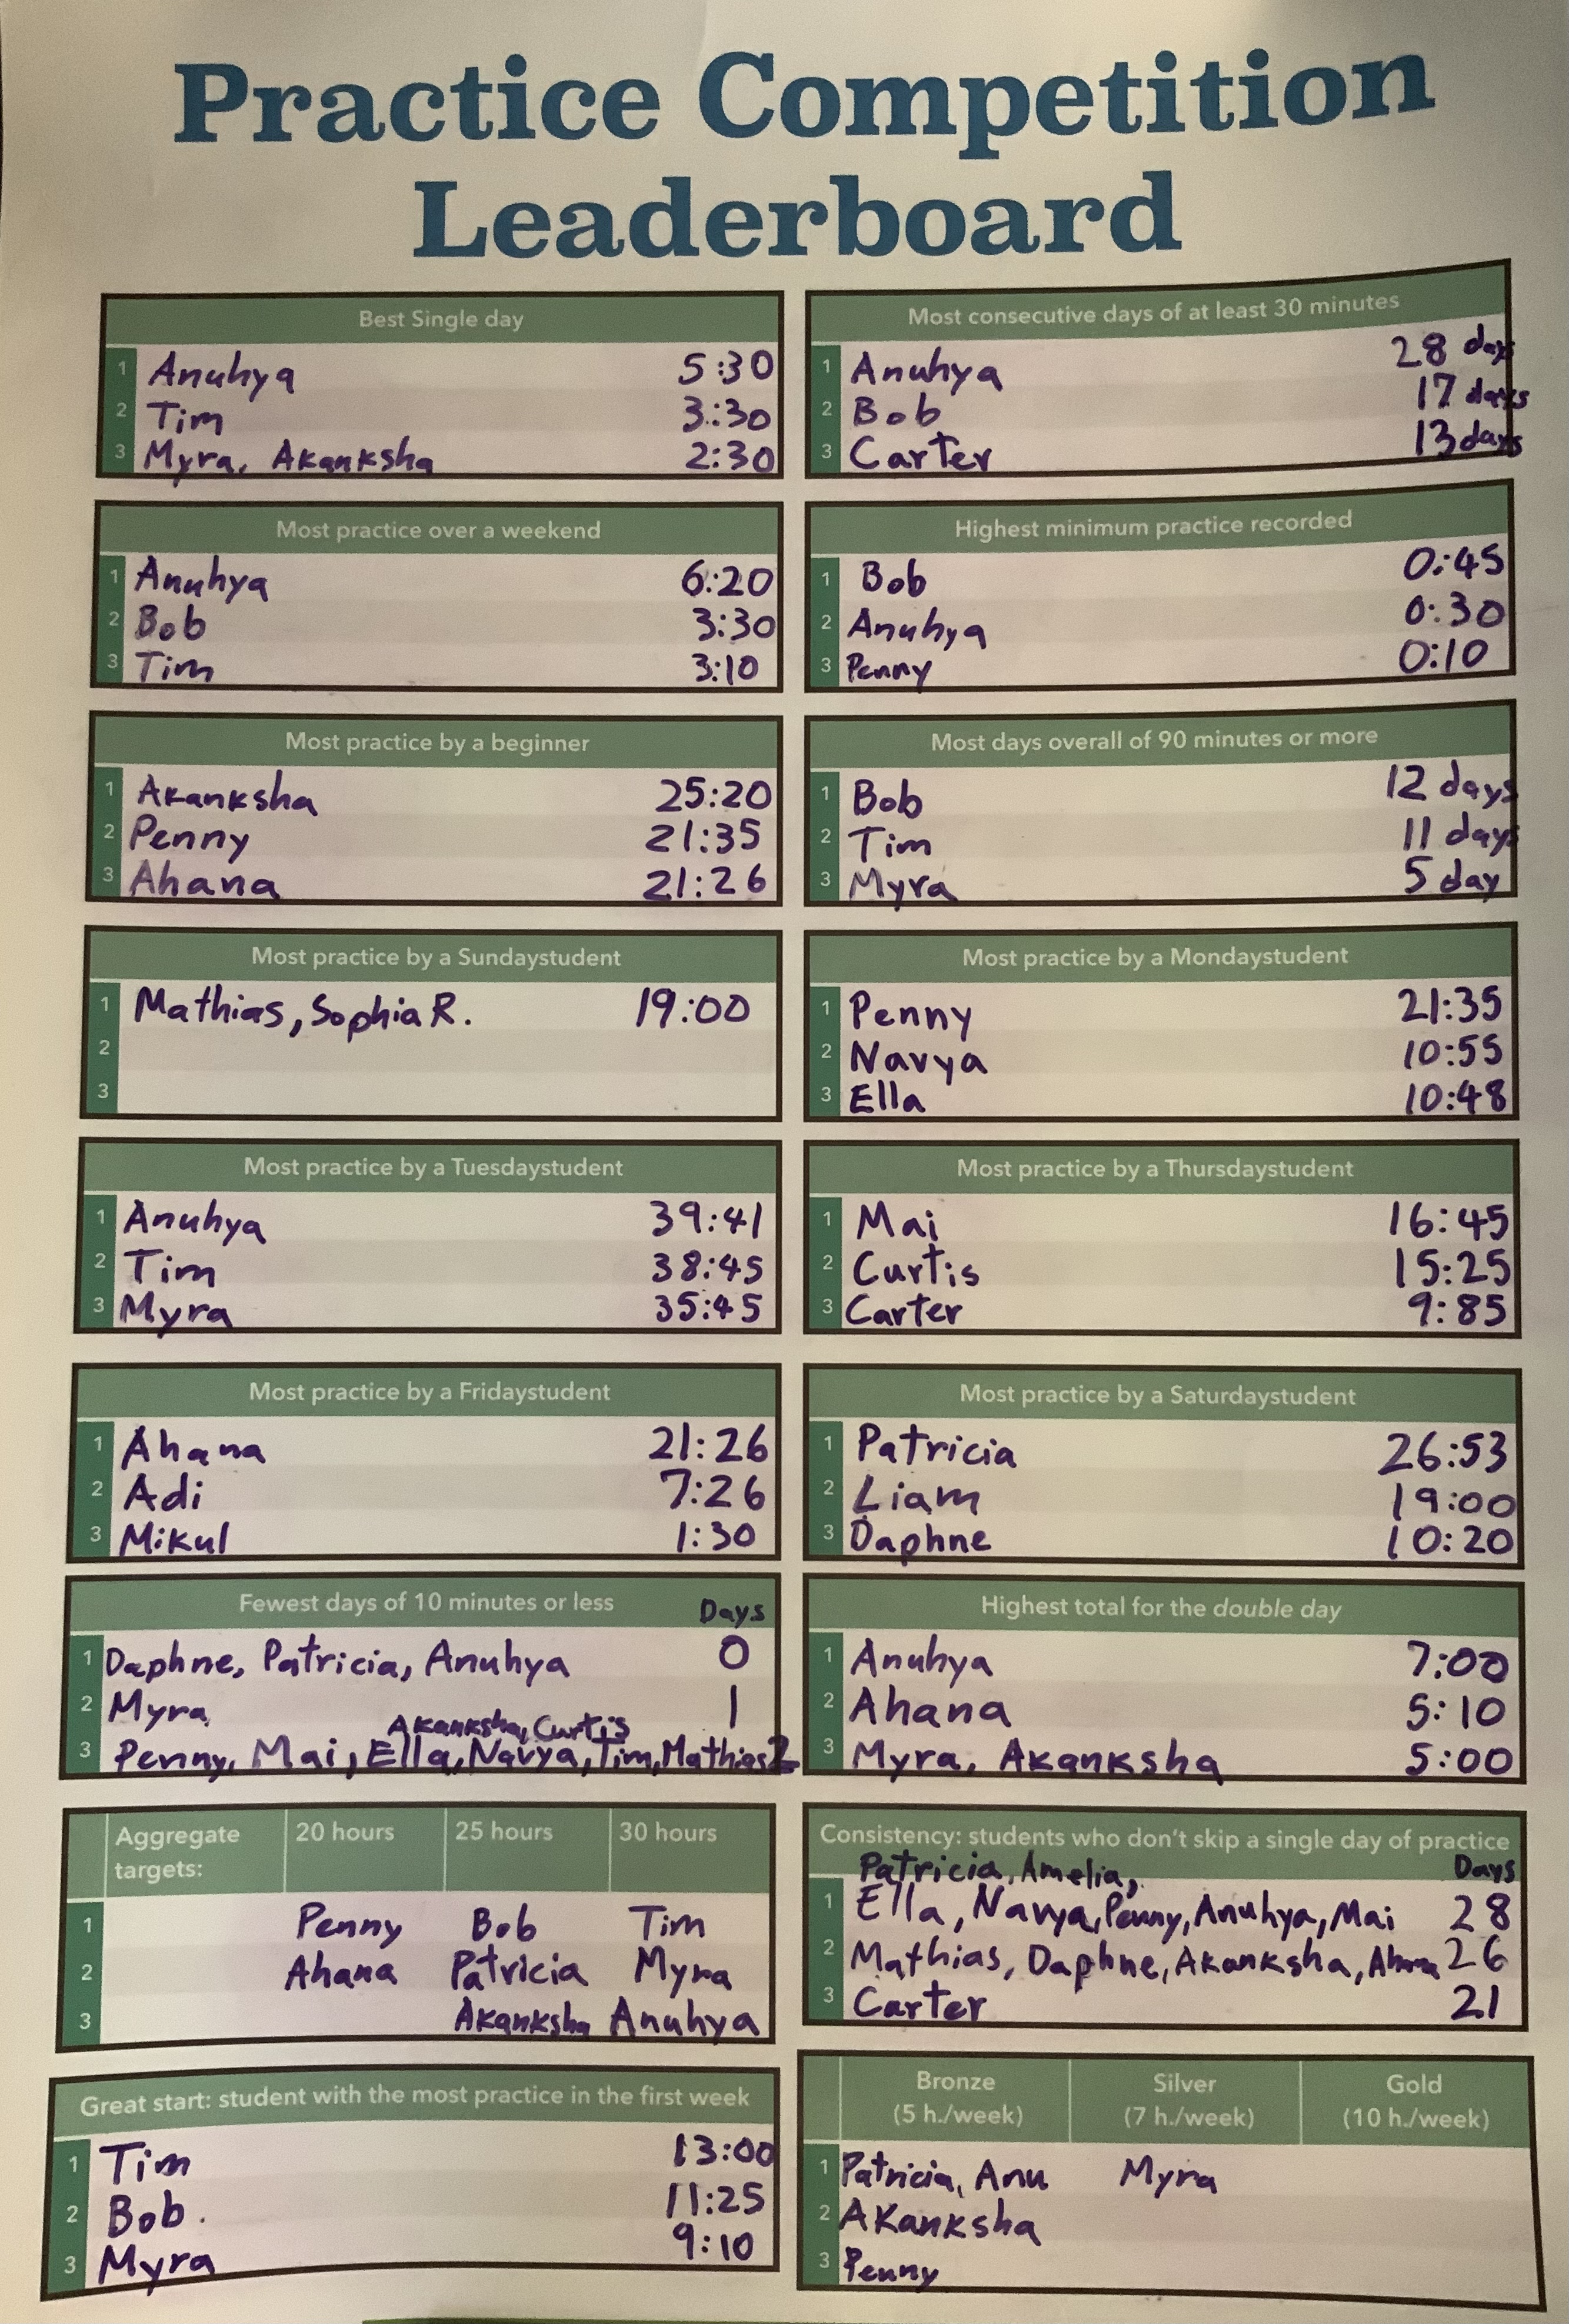 Practice Competition
Leaderboard
Best Single day
1 Anuhya 5:30
2 Tim 3:30
3 Myra, Akanksha 2:30
Most consecutive days of at least 30 minutes
1 Anuhya 28 days
2 Bob 17 days
3 Carter 13 days
Most practice over a weekend
1 Anuhya 6:20
2 Bob 3:30
3 Tim 3:10
Highest minimum practice recorded
1 Bob 0:45
2 Anuhya 0:30
3 Penny 0:10
Most practice by a beginner
1 Akanksha 25:20
2 Penny 21:35
3 Ahana 21:26
Most days overall of 90 minutes or more
1 Bob 12 days
2 Tim 11 days
3 Myra 5 day
Most practice by a Sundaystudent
1 Mathias, Sophia R. 19:00
2
3
Most practice by a Mondaystudent
1 Penny 21:35
2 Navya 10:55
3 Ella 10:48
Most practice by a Tuesdaystudent
1 Anuhya 39:41
2 Tim 38:45
3 Myra 35:45
Most practice by a Thursdaystudent
1 Mai 16:45
2 Curtis 15:25
3 Carter 9:85
Most practice by a Fridaystudent
1 Ahana 21:26
2 Adi 7:26
3 Mikul 1:30
Most practice by a Saturdaystudent
1 Patricia 26:53
2 Liam 19:00
3 Daphne 10:20
Fewest days of 10 minutes or less Days
1 Daphne, Patricia, Anuhya 0
2 Myra 1
Akanksha, Curtis
3 Penny, Mai, Ella, Navya, Tim, Mathias 2
Highest total for the double day
1 Anuhya 7:00
2 Ahana 5:10
3 Myra, Akanksha 5:00
Aggregate targets: 20 hours 25 hours 30 hours
1 Penny Bob Tim
2 Ahana Patricia Myra
3 Akanksha Anuhya
Consistency: students who don't skip a single day of practice
Patricia, Amelia, Days
1 Ella, Navya, Penny, Anuhya, Mai 28
2 Mathias, Daphne, Akanksha, Ahana 26
3 Carter 21
Great start: student with the most practice in the first week
1 Tim 13:00
2 Bob. 11:25
3 Myra 9:10
Bronze Silver Gold
(5 h./week) (7 h./week) (10 h./week)
1 Patricia, Anu Myra
2 Akanksha
3 Penny